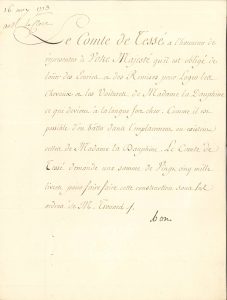 16 may 1773
Le Comte de Tessé a l'honneur de
representer à Votre Majesté qu'il est obligé de
louer des Ecuries et des Remises pour loger les
chevaux et les Voitures de Madame la Dauphine
ce que devient à la longue fort cher. Comme il est
possible d'en bâtir dans l'emplacement où existent
celles de Madame la Dauphine. Le Comte de
Tessé demande une somme de Vingt cinq mille
livres pour faire faire cette construction sous les
ordres de M.
bon